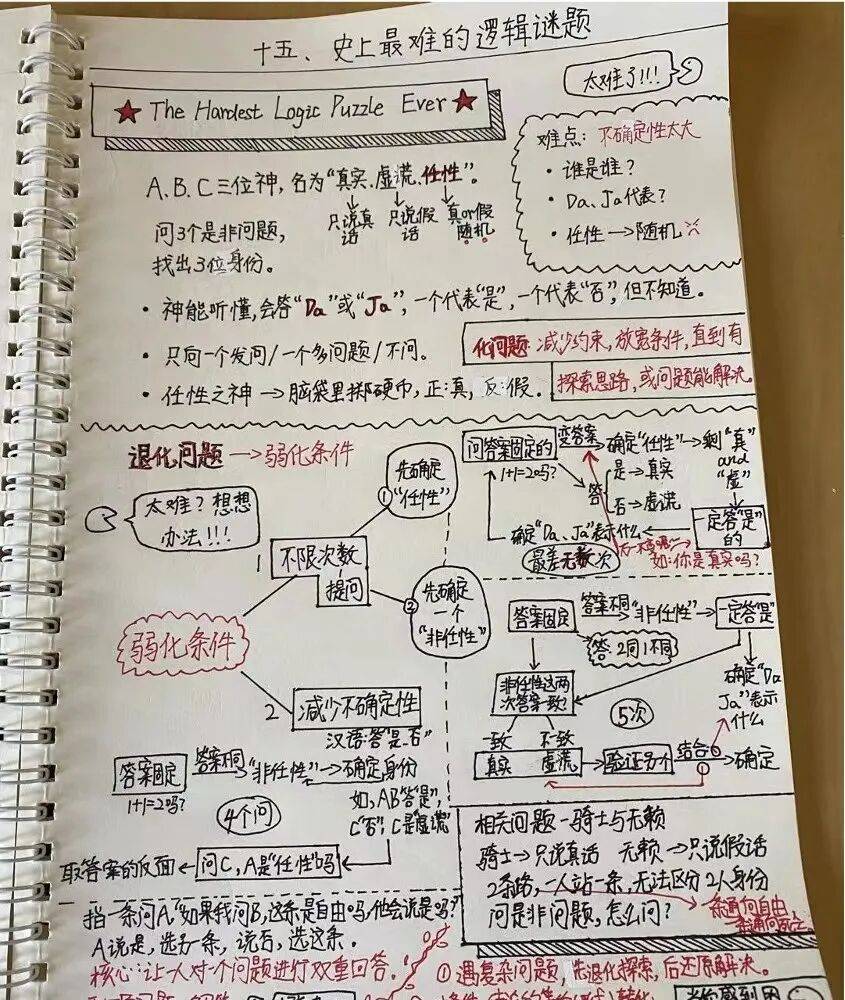 十五、史上最难的逻辑谜题
太难了!!!
★ The Hardest Logic Puzzle Ever ★
难点：不确定性太大
· 谁是谁？
· Da、Ja代表？
· 任性→随机
A、B、C三位神，名为“真实、虚谎、任性”。
只说真话 只说假话 真or假随机
问3个是非问题，
找出3位身份。
· 神能听懂，会答“Da”或“Ja”，一个代表“是”，一个代表“否”，但不知道。
· 只向一个发问/一个多问题/不问。
· 任性之神→脑袋里掷硬币，正:真，反:假。
化问题：减少约束，放宽条件，直到有
探索思路，或问题能解决。
退化问题→弱化条件
太难？想想
办法!!!
弱化条件
1 不限次数
提问
① 先确定
“任性”
② 先确定
一个
“非任性”
问答案固定的 变答案 确定“任性”→剩“真”
and
“虚”
1+1=2吗?
答 是→真实
否→虚谎
一定答“是”
的
如:你是真实吗?
确定“Da、Ja”表示什么
最差无数次
答案固定 答案不同 “非任性”→一定答“是”
答:2同1不同
确定“Da
Ja”表示
什么
非任性这两
次答案一致?
5次
一致 不致
真实 虚谎→验证另个 结合①→确定
2 减少不确定性
汉语:答“是、否”
答案固定 答案不同 “非任性”→确定身份
1+1=2吗?
如,AB答“是”,
C“否”,C是“虚谎”
4个问
取答案的反面←问C,A是“任性”吗
相关问题—骑士与无赖
骑士→只说真话 无赖→只说假话
2条路,一人站一条,无法区分2人身份
问是非问题,怎么问?
一条通向自由
挡一条问A“如果我问B,这条是自由吗,他会说是吗?”
A说是,选另一条,说否,选这条。
核心:让一人对一个问题进行双重回答.
① 遇复杂问题,先退化探索,后还原解决。